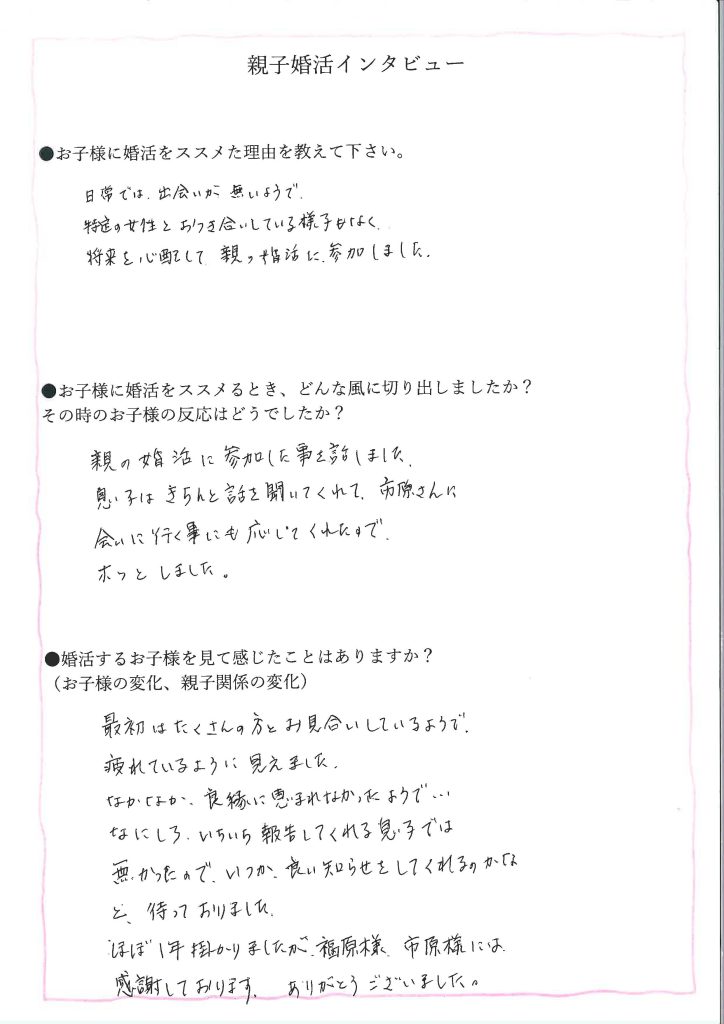 親子婚活インタビュー
●お子様に婚活をススメた理由を教えて下さい。
日常では、出会いが無いようで、
特定の女性とおつき合いしている様子もなく、
将来を心配して、親の婚活に、参加しました。
●お子様に婚活をススメるとき、どんな風に切り出しましたか？
その時のお子様の反応はどうでしたか？
親の婚活に参加した事を話しました。
息子はきちんと話を聞いてくれて、市原さんに
会いに行く事にも応じてくれたので、
ホッとしました。
●婚活するお子様を見て感じたことはありますか？
（お子様の変化、親子関係の変化）
最初はたくさんの方とお見合いしているようで、
疲れているように見えました。
なかなか、良縁に恵まれなかったようで…
なにしろ、いちいち報告してくれる息子では
無かったので、いつか、良い知らせをしてくれるのかな
と、待っておりました。
ほぼ1年掛かりましたが、福原様、市原様には
感謝しております。ありがとうございました。